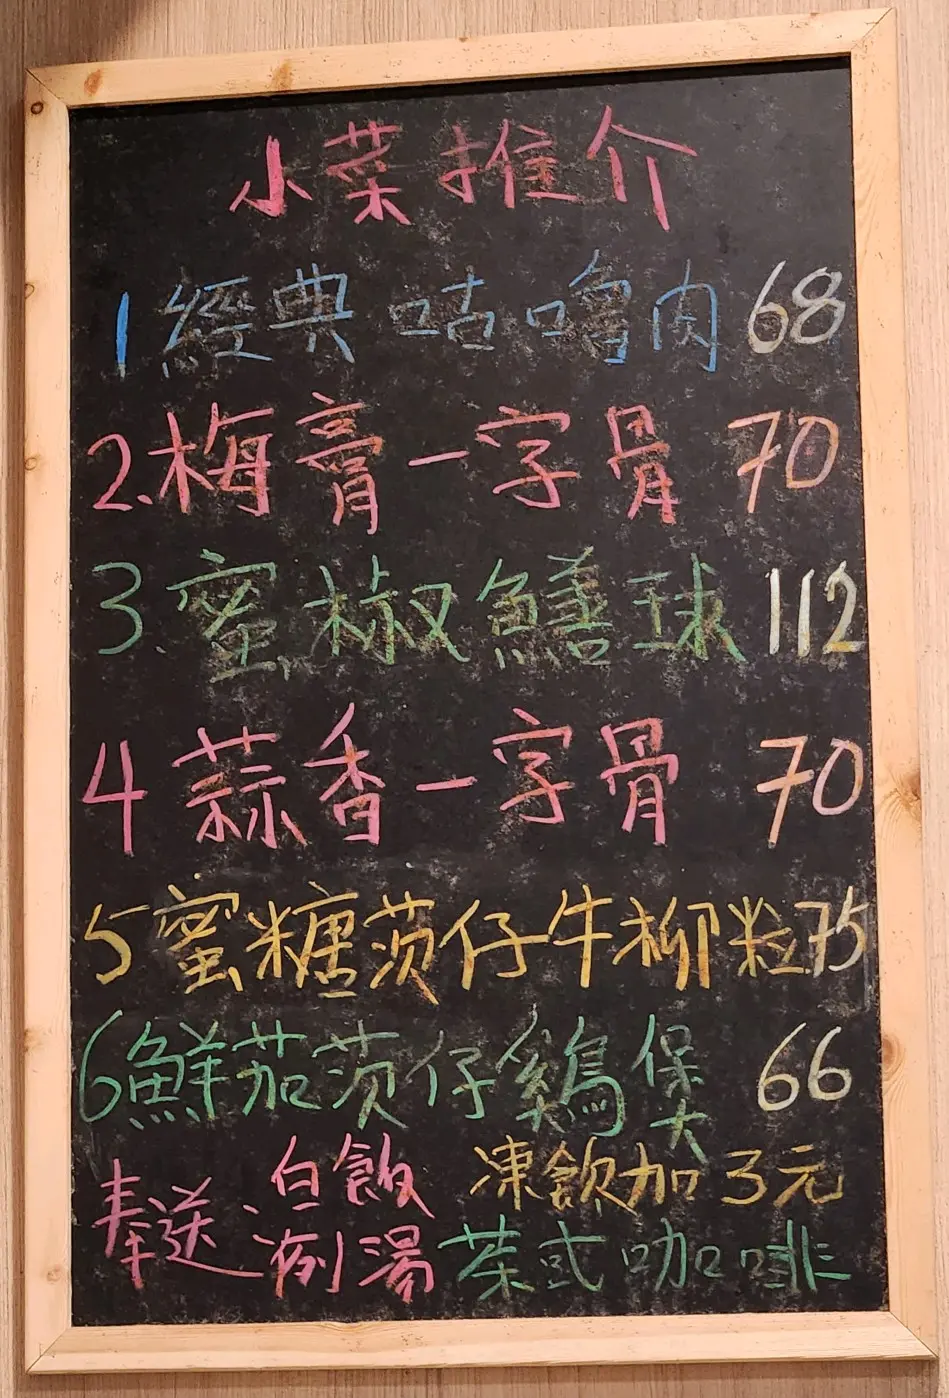 小菜推介
1 經典咕嚕肉 68
2.梅膏一字骨 70
3.蜜椒鱔球 112
4 蒜香一字骨 70
5 蜜糖茨仔牛柳粒 75
6 鮮茄茨仔鷄煲 66
奉送 白飯 例湯
凍飲加3元
茶或咖啡